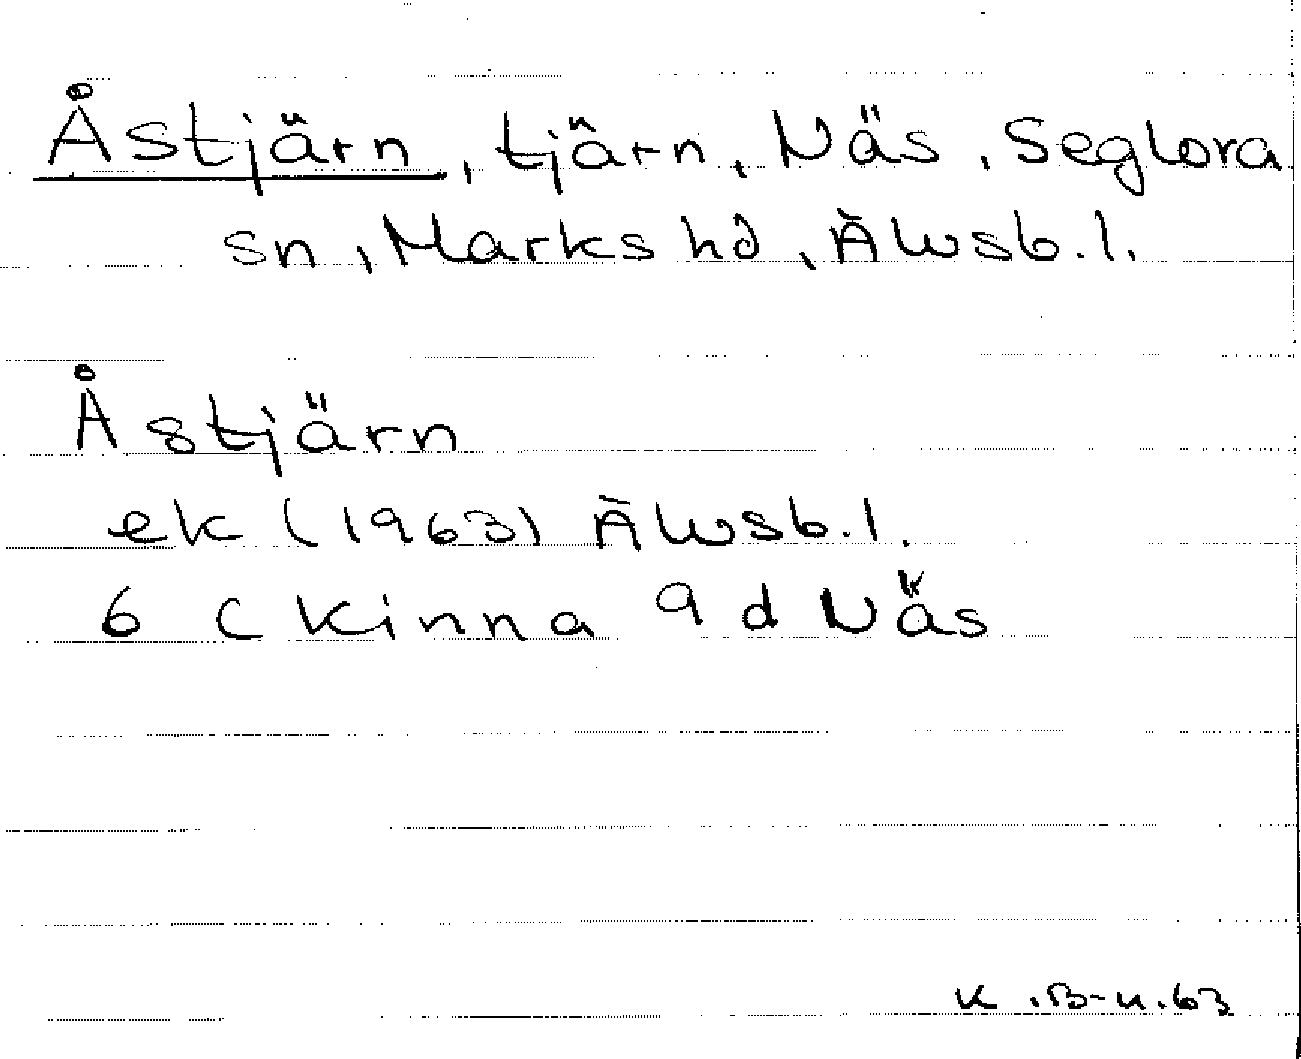 Åstjärn, tjärn, Näs, Seglora
sn, Marks hd, Älvsb.l.
Åstjärn
ek (1963) Älvsb.l.
6 C Kinna 9 d Näs
K.B-n.63